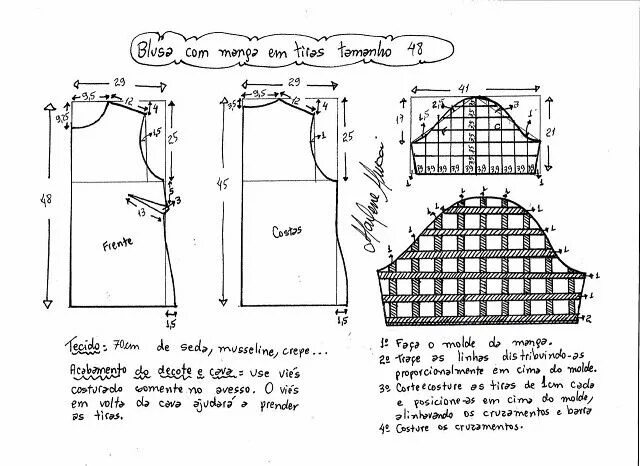 Blusa com manga em tiras tamanho 48
29
9,5
12
4
9,25
1,5
25
48
5
3
13
Frente
1,5
29
9,5
12
4
3,5
1
25
45
Costas
1,5
41
17
2,5
3
1,5
F
C
1
21
39 39 39 39 39 39 39 39 39 39
1
1
Marlene Mukai
1
1
1
1
1
1
1
1
1
1
2
Tecido: 70cm de seda, musseline, crepe...
Acabamento do decote e cava = use viés
costurado somente no avesso. O viés
em volta da cava ajudará a prender
as tiras.
1º Faça o molde da manga.
2º Trace as linhas distribuindo-as
proporcionalmente em cima do molde.
3º Corte e costure as tiras de 1cm cada
e posicione-as em cima do molde,
alinhavando os cruzamentos e barra
4º Costure os cruzamentos.